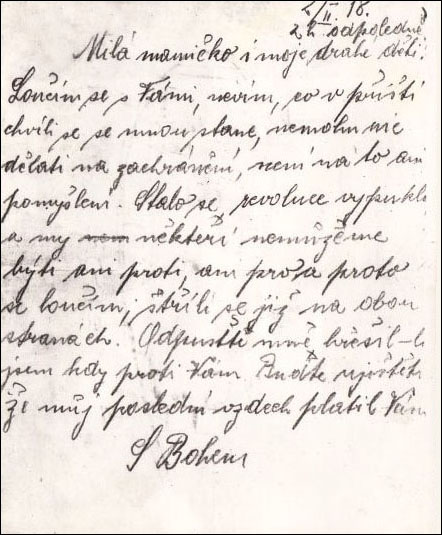 2/II. 18.
2 h odpoledne
Milá mamičko i moje drahé děti!
Loučím se s Vámi, nevím, co v příští
chvíli se se mnou stane, nemohu nic
dělati na zachránění, není na to ani
pomyšlení. Stalo se, revoluce vypukla
a my někteří nemůžeme
býti ani proti, ani pro a proto
se loučím, střílí se již na obou
stranách. Odpusťtě mně hřešil-li
jsem kdy proti Vám Buďte ujištěni
že můj poslední vzdech platil Vám
S Bohem